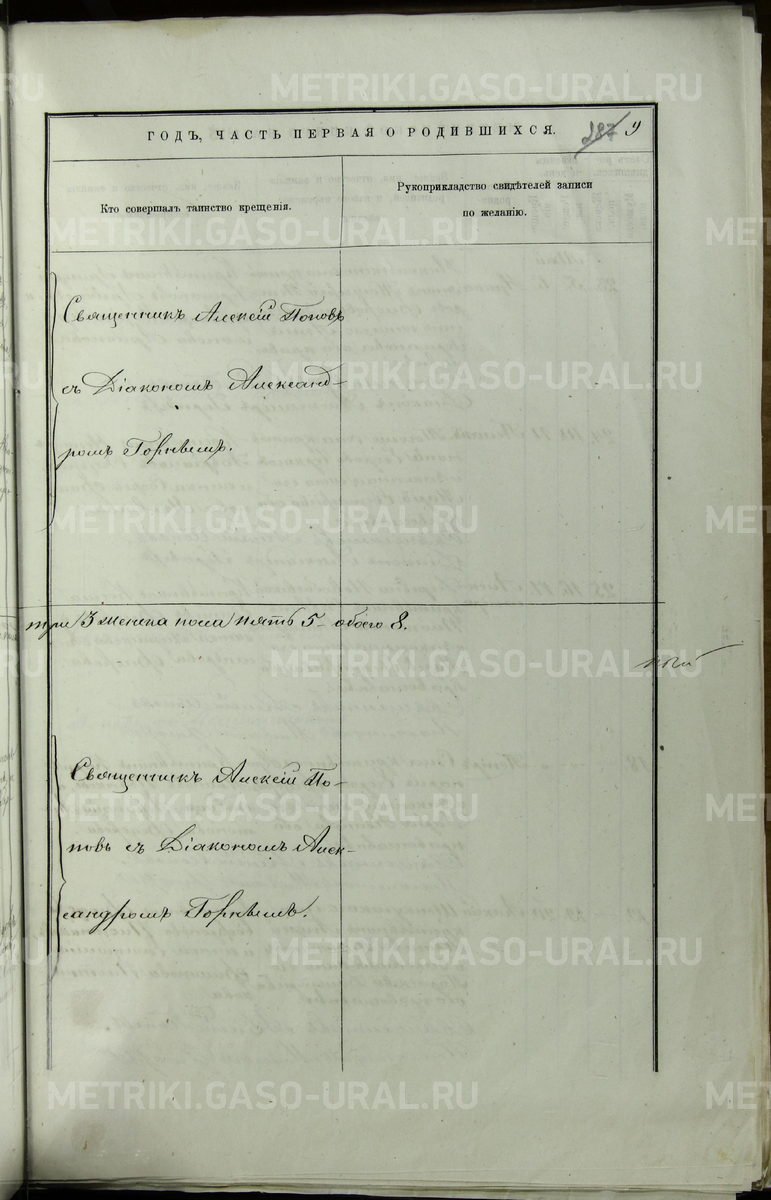 METRIKI.GASO-URAL.RU
ГОДЪ, ЧАСТЬ ПЕРВАЯ О РОДИВШИХСЯ. 387 9
Кто совершалъ таинство крещенія.
Рукоприкладство свидѣтелей записи
по желанію.
Священникъ Алексій Поповъ
съ Діакономъ Александ-
ромъ
три 3 женска пола пять 5 - обоего 8.
Священникъ Алексій По-
повъ съ Діакономъ Алек-
сандромъ